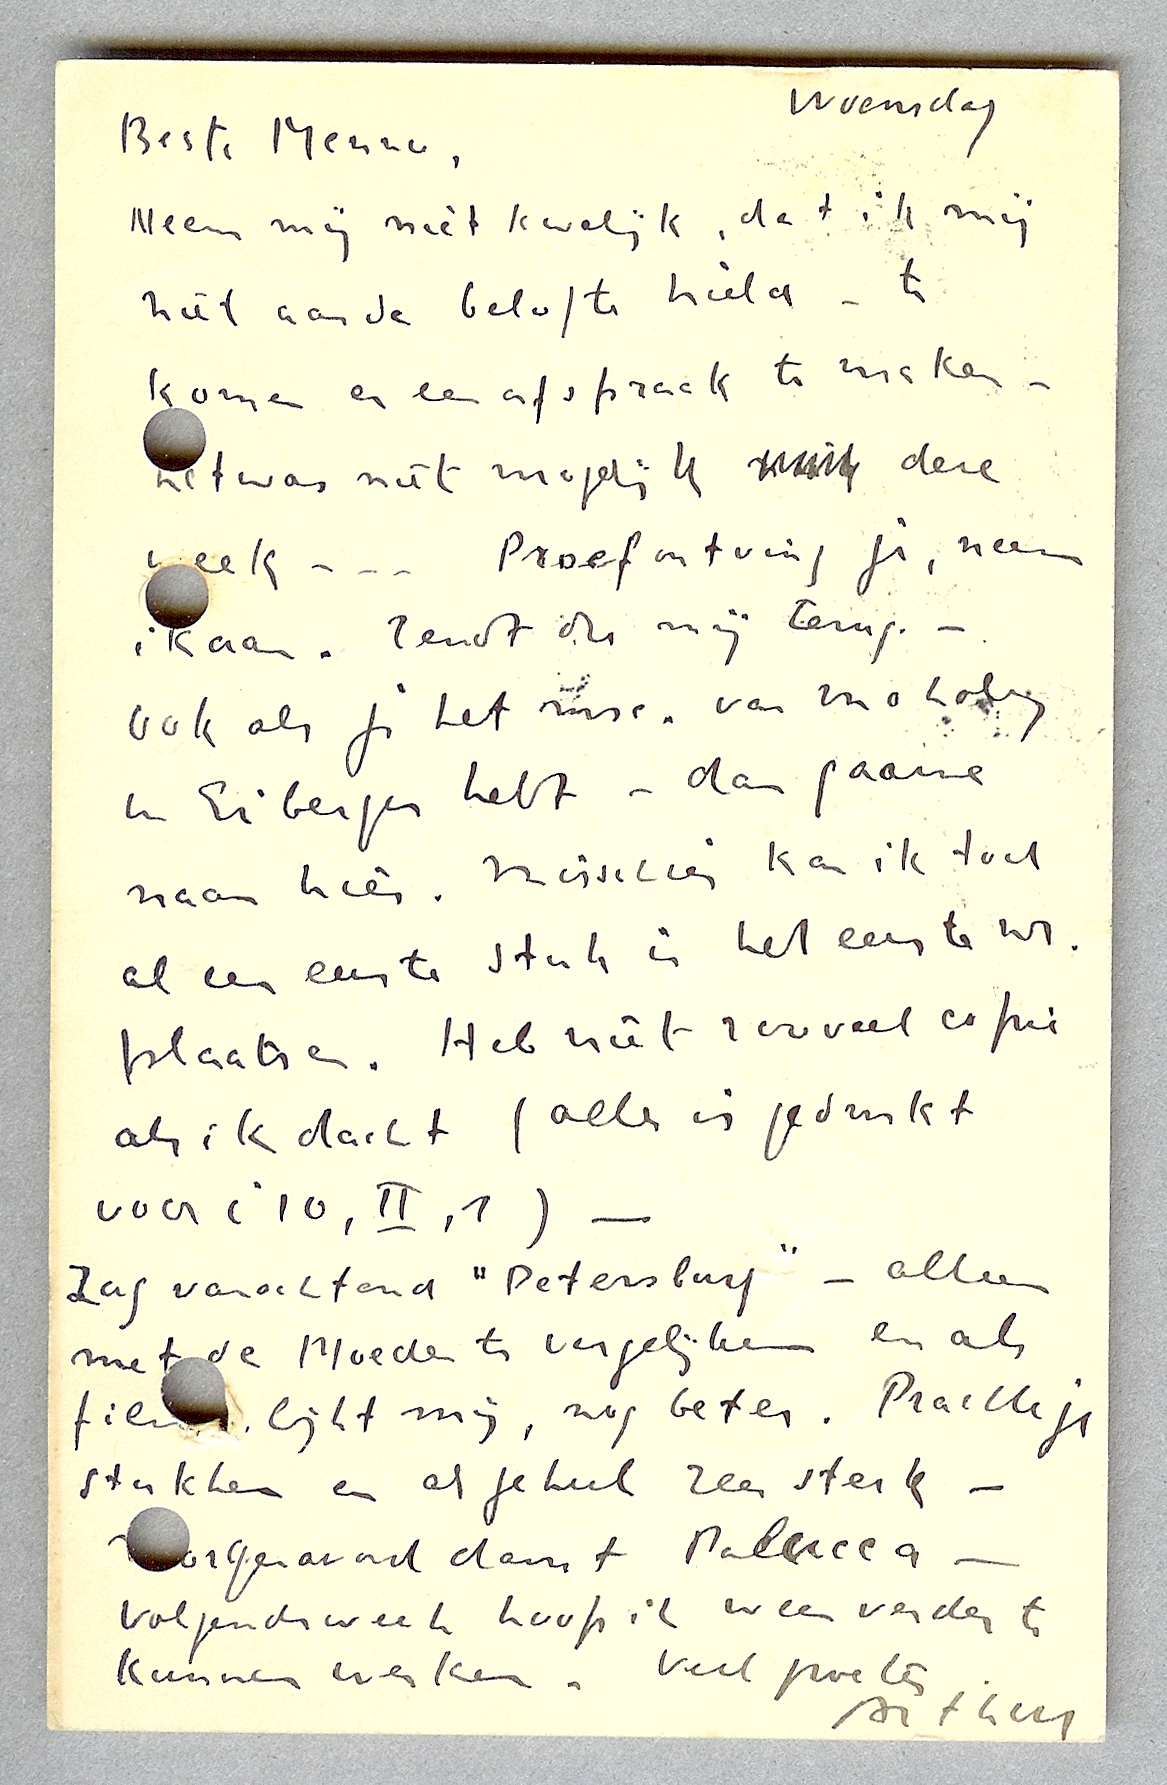 Woensdag
Beste Menno,
Neem mij niet kwalijk, dat ik mij
niet aan de belofte hield – te
komen en een afspraak te maken –
het was niet mogelijk deze
week – – – Proef ontving je, neem
ik aan. Zendt die mij terug. –
Ook als je het msc. van Moholy
en Eibergen hebt – dan gaarne
naar hier. Misschien kan ik toch
al een eerste stuk in het eerste nr.
plaatsen. Heb niet zooveel copie
als ik dacht (alles is gedrukt
voor i 10, II, 1) —
Zag vanochtend "Petersburg" – alleen
met de Moeder te vergelijken en als
film, lijkt mij, nog beter. Prachtige
stukken en als geheel zeer sterk –
Morgenavond danst Palucca —
Volgende week hoop ik weer verder te
kunnen werken. Veel groeten.
Arthur